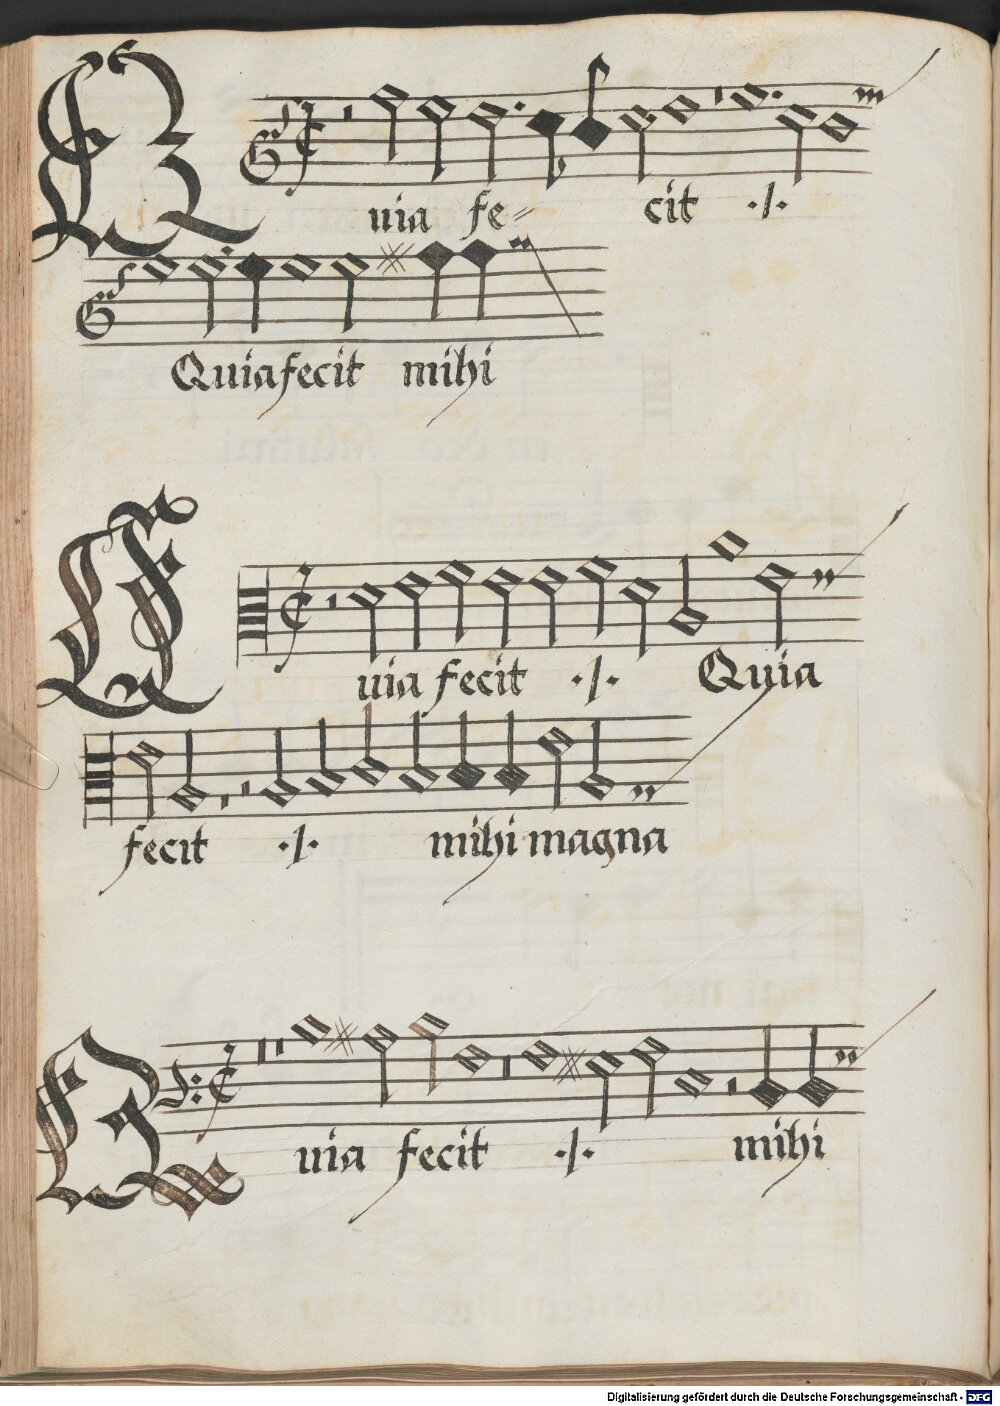 Quia fe= cit ./.
Quia fecit mihi
Quia fecit ./. Quia
fecit ./. mihi magna
Quia fecit ./. mihi
Digitalisierung gefördert durch die Deutsche Forschungsgemeinschaft - DFG